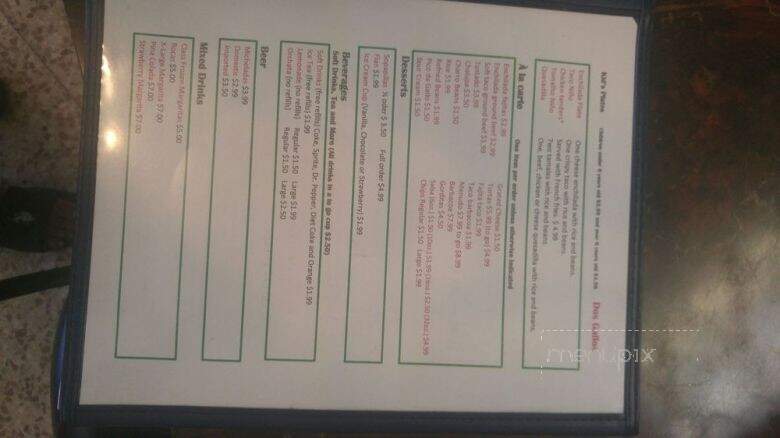 Kid's Plates Children under 6 years old $3.99 and over 6 years old $4.99 Dos Gallos
Enchilada Plate One cheese enchilada with rice and beans
Taco Niño One crispy taco with rice and beans
Chicken Served with French fries $4.99
Tamales Niño Two tamales with rice and beans
Quesadilla One beef, chicken or cheese quesadilla with rice and beans
À la carte One item per order unless otherwise indicated
Enchilada $1.99
Enchilada ground beef $2.99
Soft taco ground beef $1.99
Tostada $3.99
Chalupa $2.50
Charro Beans $1.50
Rice $1.99
Refried Beans $1.99
Pico de Gallo $1.50
Sour Cream $1.50
Grated Cheese $1.50
Tortas $5.99 (to go) $4.99
Fajita taco $2.99
Taco barbacoa $1.99
Menudo $7.99 to go $8.99
Barbacoa $7.99
Gorditas $4.50
Chips Regular $1.50 Large $1.99
Desserts
Sopapillas ½ oder $ 3.50 Full order $4.99
Flan $1.99
Ice Cream Cup (Vanilla, Chocolate or Strawberry) $1.99
Beverages
Soft Drinks, Tea and More (All drinks in a to go cup $2.50)
Soft Drinks (free refills) Coke, Sprite, Dr. Pepper, Diet Coke and Orange $1.99
Ice Tea (free refills) $1.99
Lemonade (no refills) Regular $1.50 Large $1.99
Orchata (no refills) Regular $1.50 Large $2.50
Beer
Micheladas $3.99
Domestic $2.99
Imported $3.50
Mixed Drinks
Class Frozen Margaritas $5.00
Rocas $5.00
X-Large Margarita $7.00
Piña Colada $7.00
Strawberry Margarita $7.00
menupix